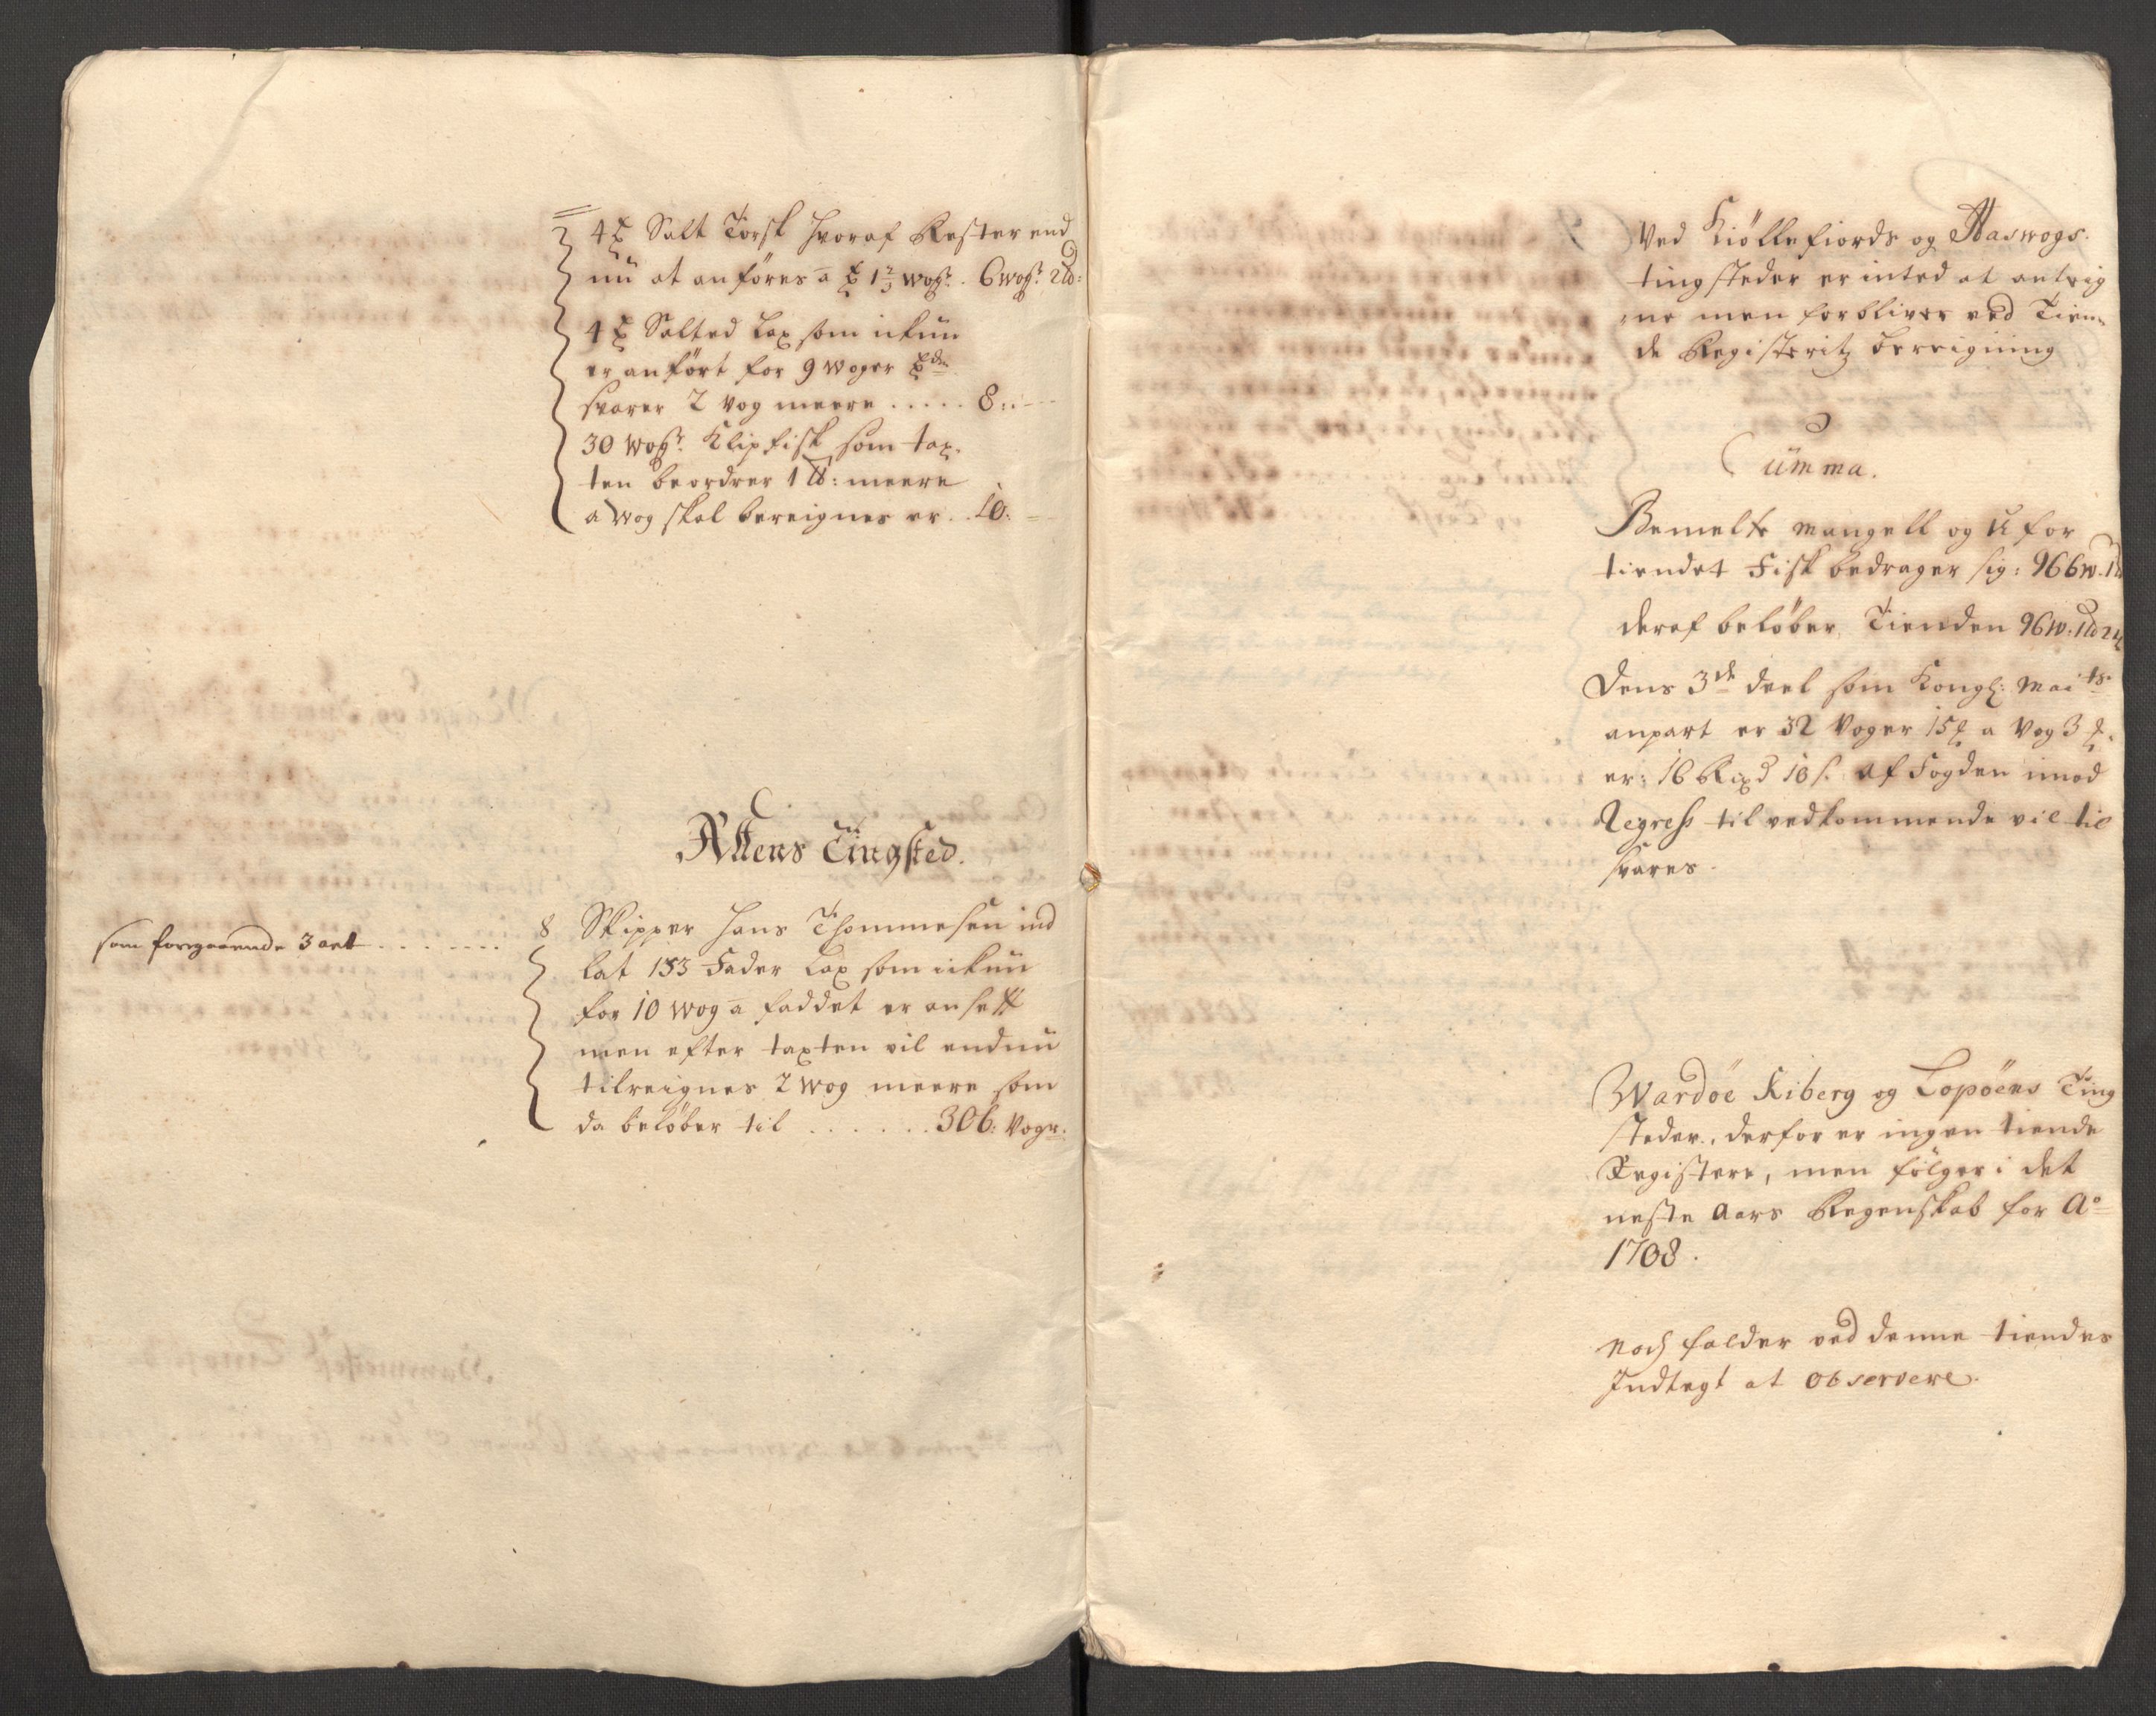 4 Salt Torsk hvoraf Rester end
nu at anføres a 1 2/3 wogr. 6 wogr 2 lb:
4 Salted Lax som ickun
er anført for 9 woger
svarer 2 vog meere ..... 8:
30 wogr Klipfisk som tax,
ten beordrer 1 lb: meere
a wog skal bereignes er .. 10:
Altens Tingsted.
som foregaaende 3 art .......
8 Skipper Hans Thommesen ind
lat 153 Fader Lax som ickun
for 10 wog a faddet er ansett
men efter taxten vil endnu
tilreignes 2 wog meere som
da beløber til ...... 306: Vogr.
Ved Kiøllefiords og Maswogs
tingsteder er inted at anteig
ne men forbliver ved Tien
de Registeritz berregning
Summa.
Bemelte mangell og Ufor
tiendet Fisk bedrager sig: 966 w. 1
deraf beløber Tienden 96 w: 1 lb 24
Dens 3de deel som Kongl: Maits
anpart er 32 Voger 15 a Vog 3
er: 16 Rixd 10 s. af Fogden imod
Regress til vedkommende vil til
svares.
Wardøe Kiberg og Lopøens Ting
steder, derfor er ingen tiende
Registere, men følger i det
neste Aars Regenskab for Ao
1708.
Noch falder ved denne tiendes
Indtegt at observere.